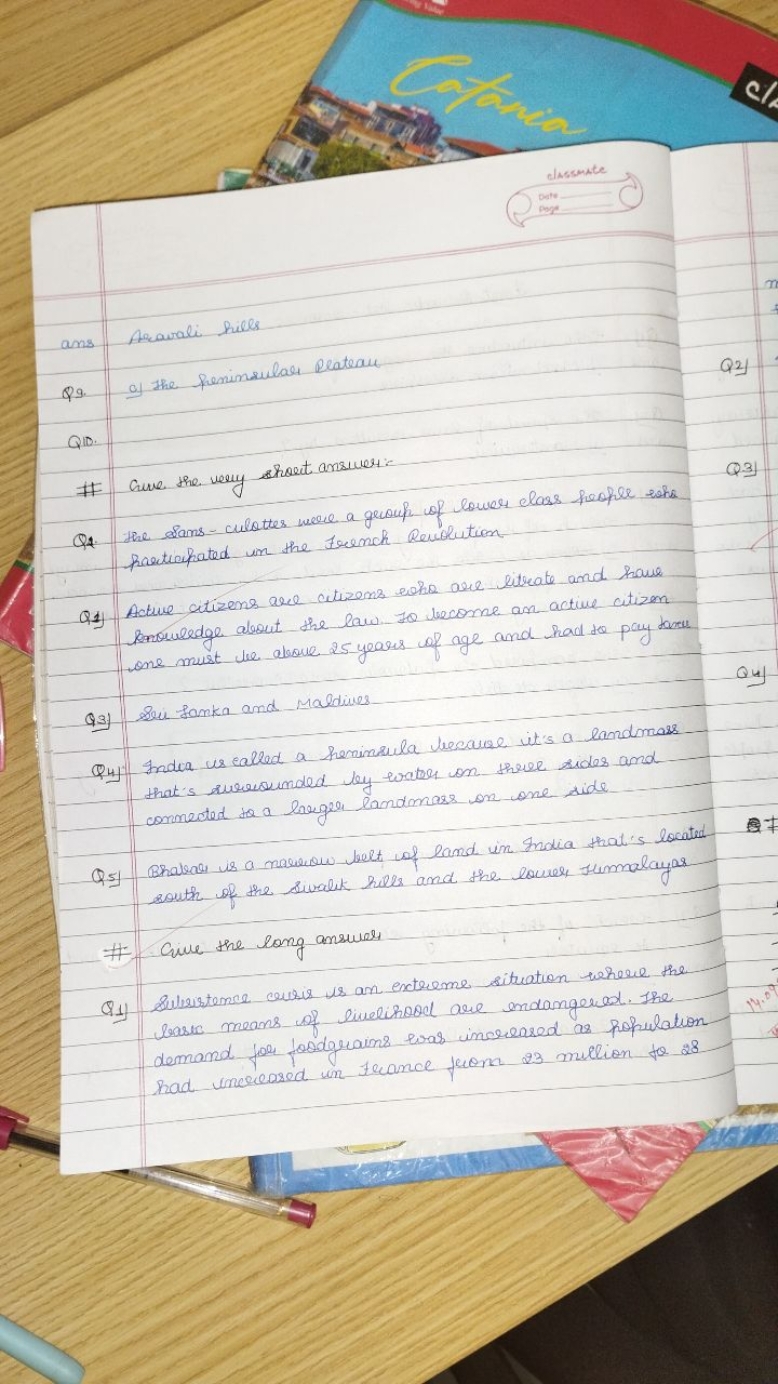 Catania
cla
classmate
Date
Page
ans Aravali hills
Q9. a) The peninsular Plateau
Q10.
# Give the very short answer:-
Q1. The Sans-culottes were a group of lower class people who
participated in the French Revolution
Q2) Active citizens are citizens who are litrate and have
knowledge about the law. To become an active citizen
one must be above 25 years of age and had to pay taxes
Q3) Sri Lanka and Maldives
Q4) India is called a peninsula because it's a landmass
that's surrounded by water on three sides and
connected to a larger landmass on one side
Q5) Bhabar is a narrow belt of land in India that's located
south of the Siwalik hills and the lower Himmalayas
# Give the long answer
Q1) Subsistence crisis is an extreme situation where the
basic means of livelihood are endangered. The
demand for foodgrains was increased as population
had increased in France from 23 million to 28
Q2)
Q3)
Q4)
#